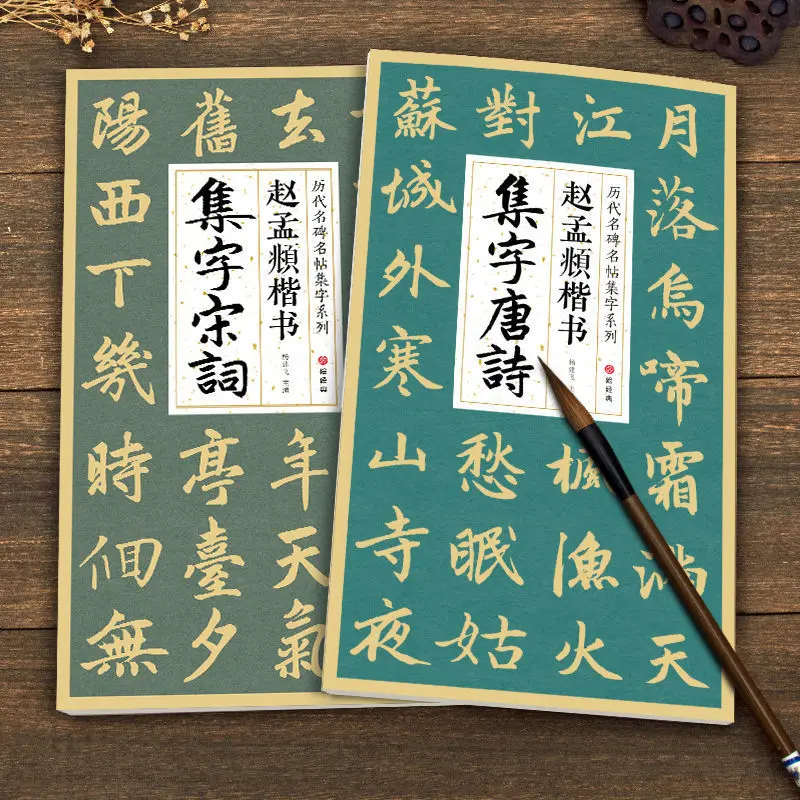 去年天氣
舊亭臺夕
陽西下幾時佪無
历代名碑名帖集字系列
绘经典
赵孟頫楷书
杨建飞 主编
集字宋詞
月落烏啼霜滿天
江楓漁火
對愁眠姑
蘇城外寒山寺夜
历代名碑名帖集字系列
绘经典
赵孟頫楷书
杨建飞
集字唐詩